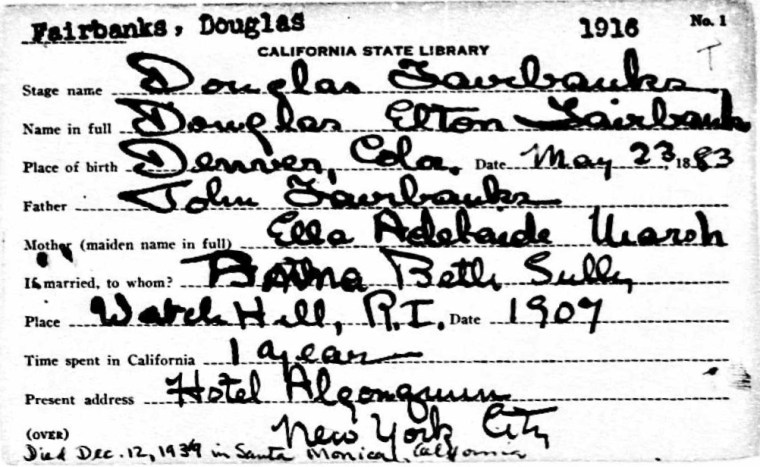 Fairbanks, Douglas 1916 No. 1
T
CALIFORNIA STATE LIBRARY
Stage name Douglas Fairbanks
Name in full Douglas Elton Fairbanks
Place of birth Denver, Colo. Date May 23, 1883
Father John Fairbanks
Mother (maiden name in full) Ella Adelaide Marsh
If married, to whom? Beth Sully
Place Watch Hill, R.I. Date 1907
Time spent in California 1 year
Present address Hotel Algonquin
(OVER) New York City
Died Dec. 12, 1939 in Santa Monica, California